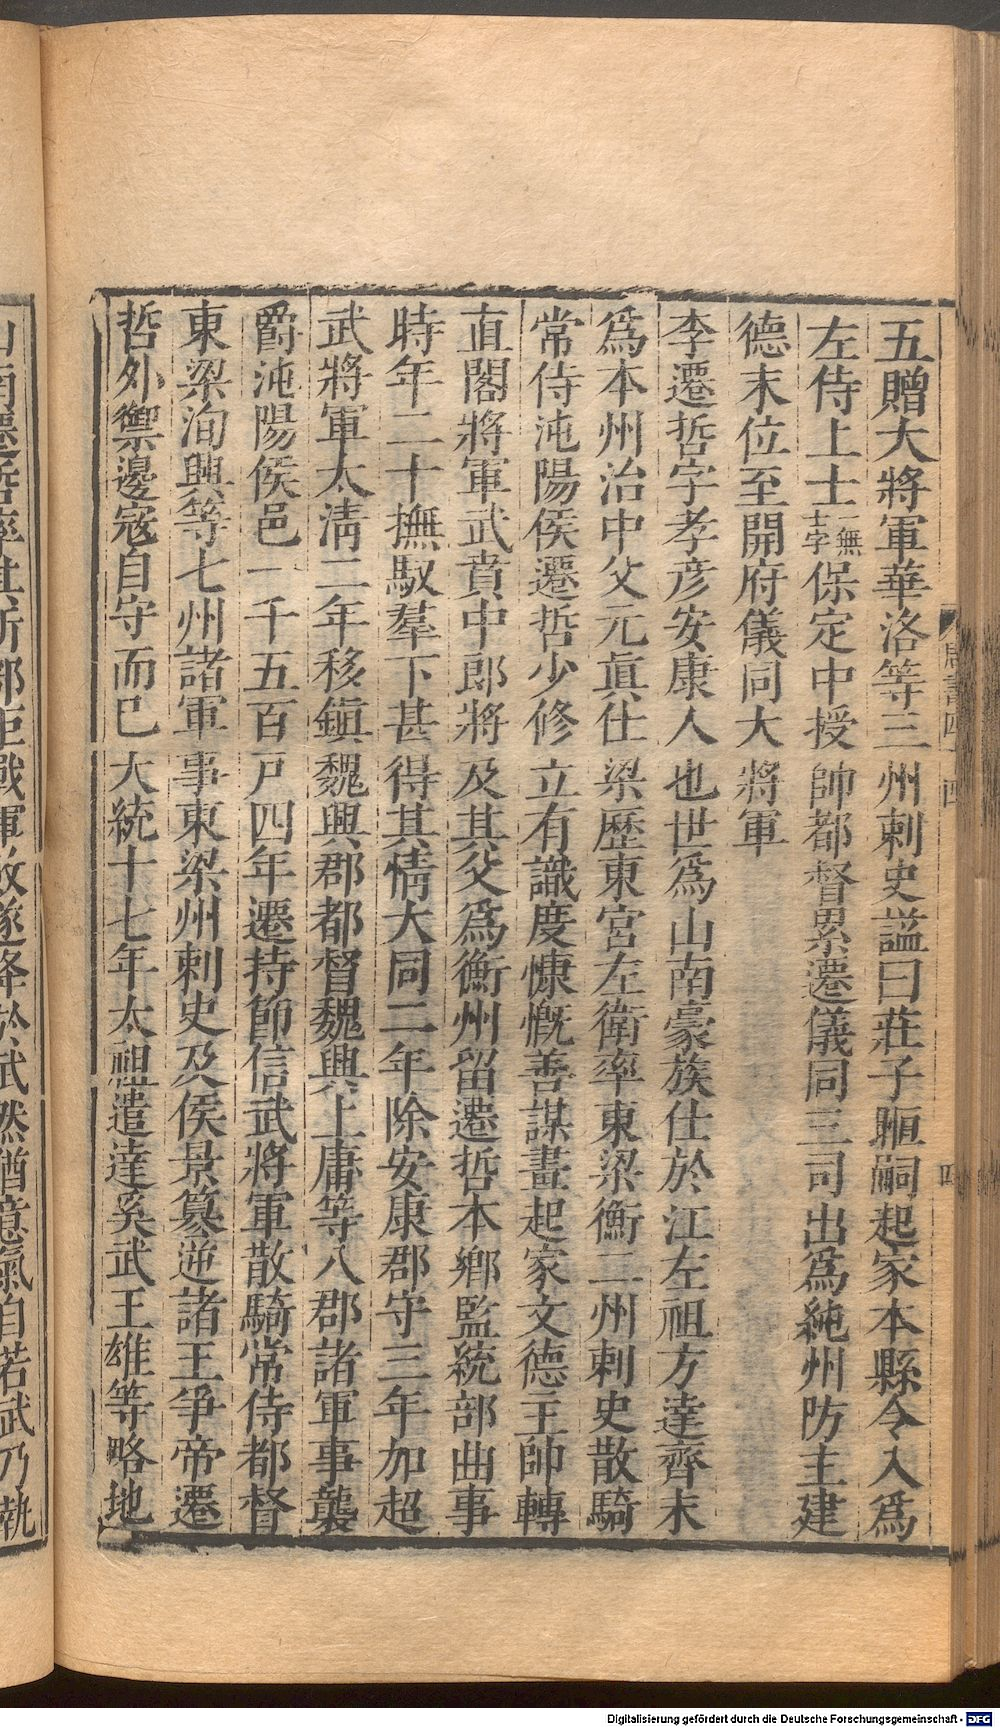 五贈大將軍華洛等三州刺史謚曰莊子暅嗣起家本縣令入爲
左侍上士一無士字保定中授帥都督累遷儀同三司出爲純州防主建
德末位至開府儀同大將軍
李遷哲字孝彥安康人也世爲山南豪族仕於江左祖方達齊末
爲本州治中父元眞仕梁歷東宮左衛率東梁衡二州刺史散騎
常侍沌陽侯遷哲少修立有識度慷慨善謀畫起家文德主帥轉
直閣將軍武賁中郎將及其父爲衡州留遷哲本鄉監統部曲事
時年二十撫馭羣下甚得其情大同二年除安康郡守三年加超
武將軍太淸二年移鎭魏興郡都督魏興上庸等八郡諸軍事襲
爵沌陽侯邑一千五百戸四年遷持節信武將軍散騎常侍都督
東梁洵興等七州諸軍事東梁州刺史及侯景簒逆諸王爭帝遷
哲外禦邊寇自守而已大統十七年太祖遣達奚武王雄等略地
山南遷哲率其所部拒戰軍敗遂降於武然猶意氣自若武乃執
周書四十四
四
Digitalisierung gefördert durch die Deutsche Forschungsgemeinschaft - DFG